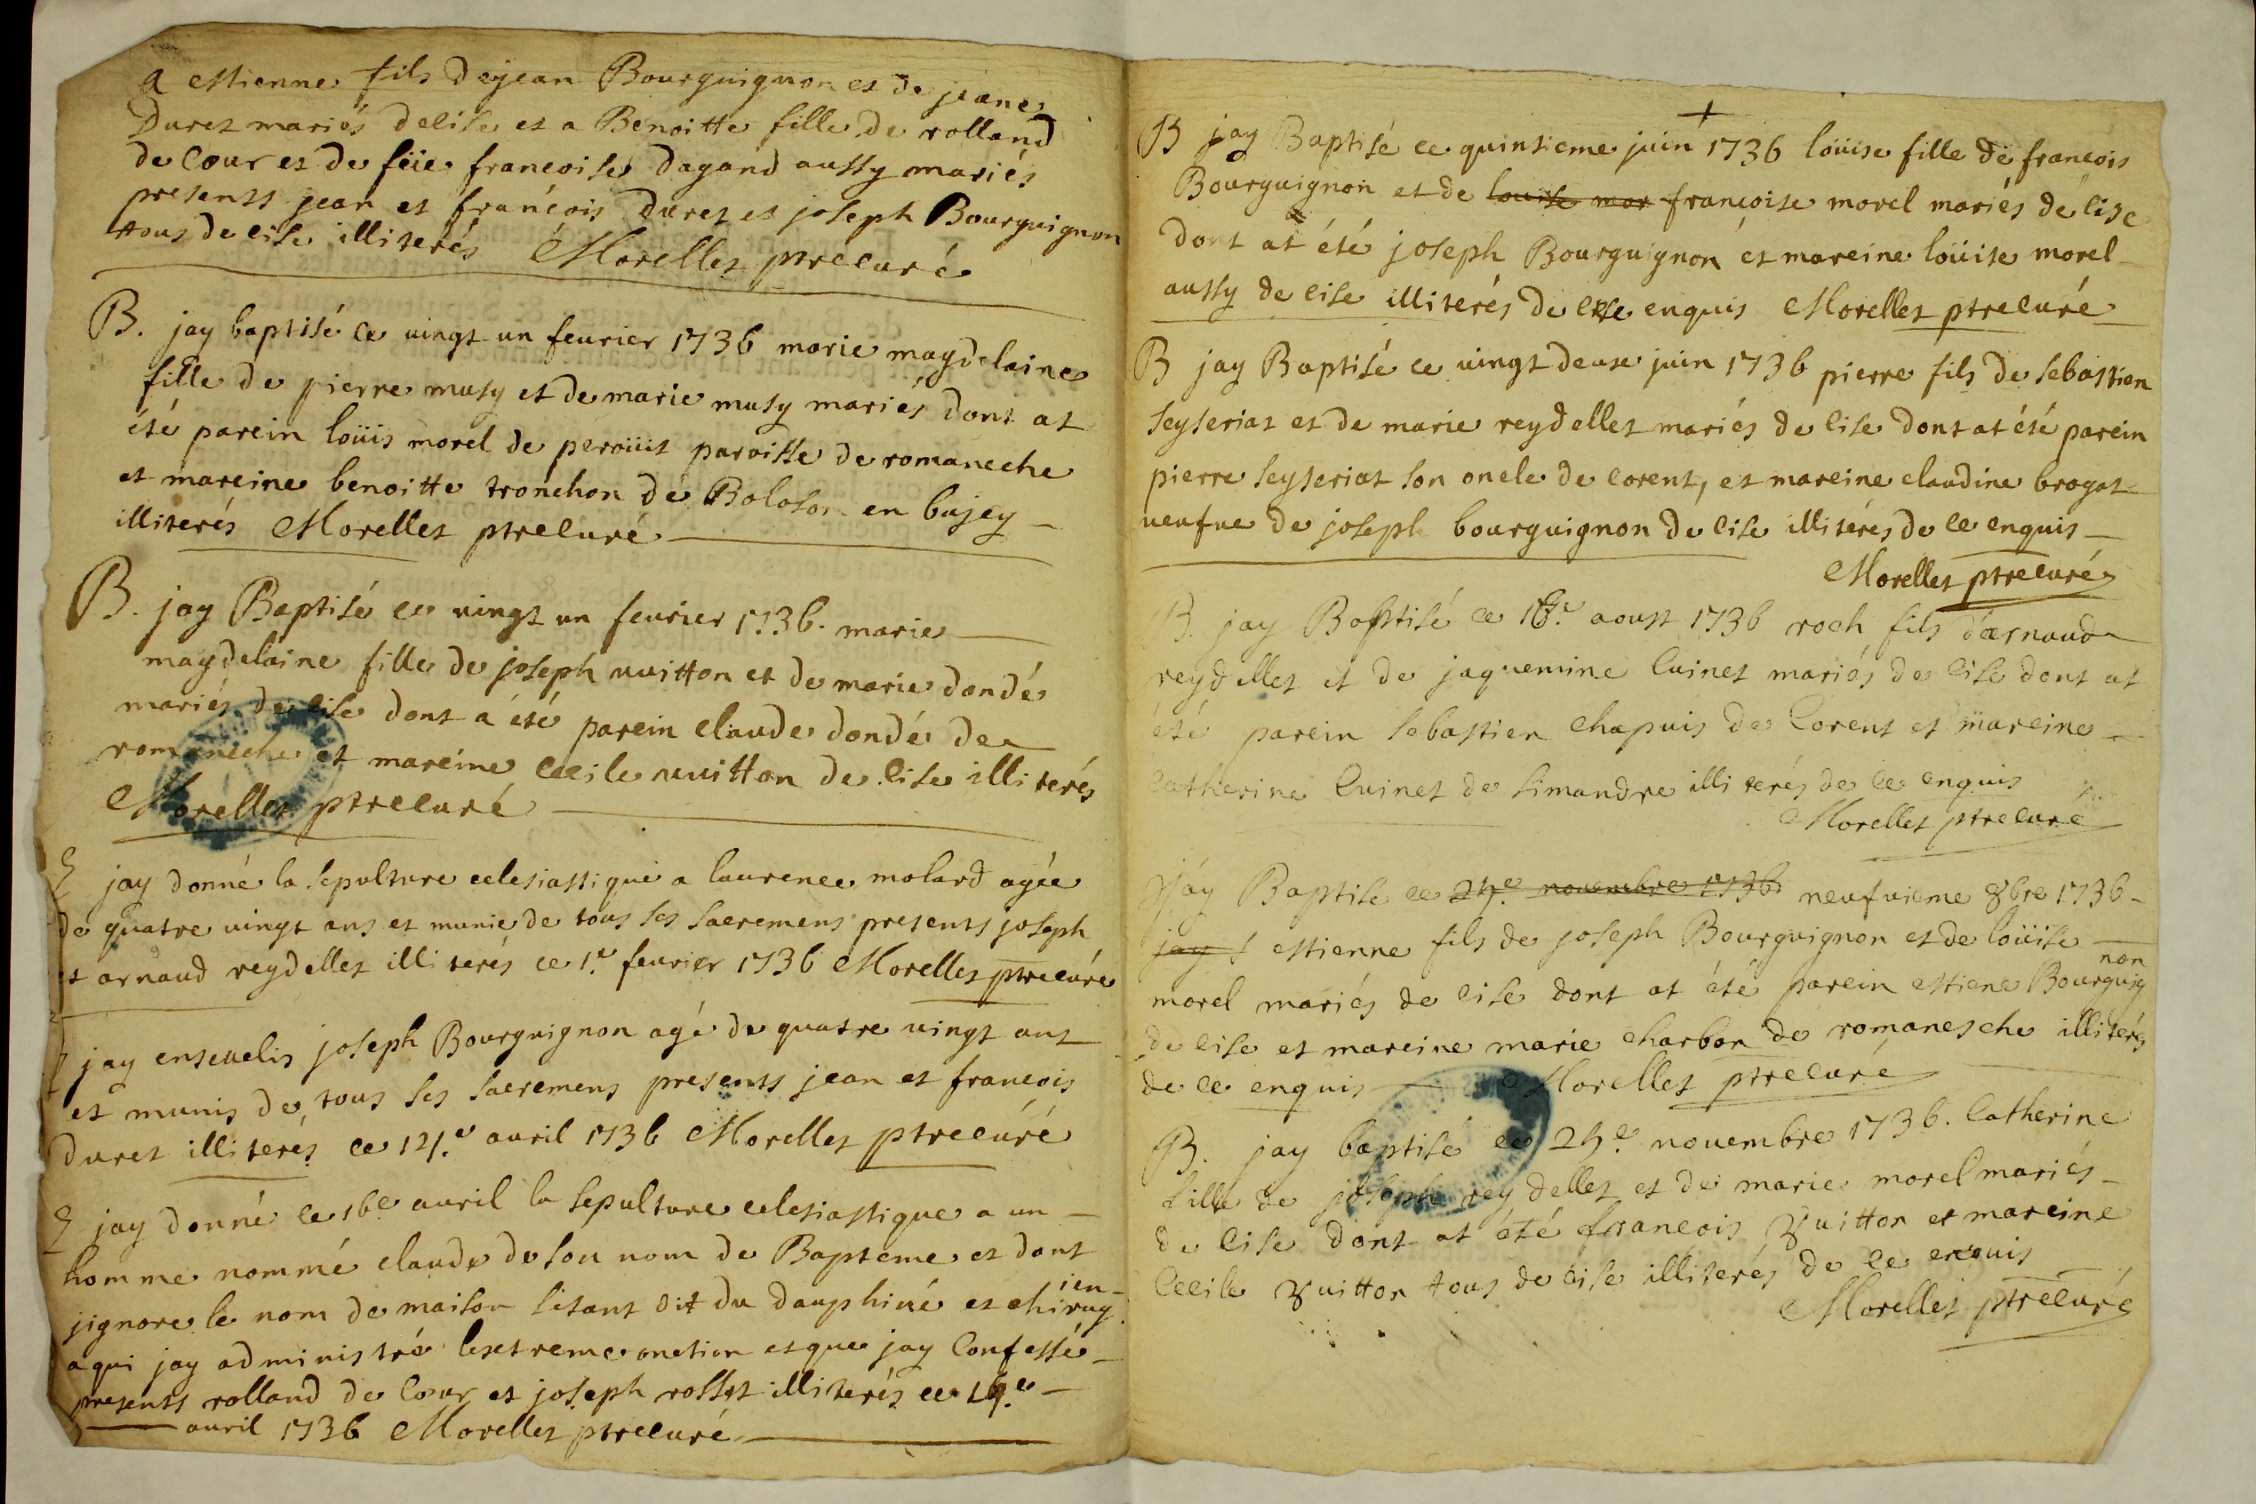 a estienne fils de jean Bourguignon et de jeane
Duret mariés delise et a Benoitte fille de rolland
de Cour et de feüe francoise dagand aussy mariés
presents jean et francois duret et joseph Bourguignon
tous de lise illiterés Morellet ptrecuré
B. jay baptisé ce vingt un feurier 1736 marie magdelaine
fille de pierre musy et de marie musy mariés dont at
été parein loüis morel de peroüit paroisse de romaneche
et mareine benoitte tronchon de Boloson en bujey
illiterés Morellet ptrecuré
B. jay Baptisé ce vingt un feurier 1736. marie
magdelaine fille de joseph vuitton et de marie dondé
mariés de lise dont a été parein claude dondé de
romaneche et mareine cecile vuitton de lise illiterés
Morellet ptrecuré
S jay donné la sepulture eclesiastique a laurence molard agée
de quatre vingt ans et munie de tous ses sacremens presents joseph
et arnaud reydellet illiterés ce 1.e feurier 1736 Morellet ptrecuré
S jay enseuelis joseph Bourguignon agé de quatre vingt ans
et munis de tous ses sacremens presents jean et francois
duret illiterés ce auril 1736 Morellet ptrecuré
S jay donné ce 16e auril la sepulture eclesiastique a un
homme nommé claude de son nom de Bapteme et dont
jignore le nom de maison sisant dit du dauphiné et chirug
ien
a qui jay administré lextreme onction et que jay Confessé
presents rolland de Cour et joseph rosset illiterés ce
auril 1736 Morellet ptrecuré
B jay Baptisé ce quinsieme juin 1736 loüise fille de francois
Bourguignon et de louise mor francoise morel mariés de lise
dont at été joseph Bourguignon et mareine loüise morel
aussy de lise illiterés de ce enquis Morellet ptrecuré
B jay Baptisé ce vingt deuxe juin 1736 pierre fils de sebastien
seyseriat et de marie reydellet mariés de lise dont at été parein
pierre seyseriat son oncle de corent, et mareine claudine brogat
veufue de joseph bourguignon de lise illiterés de ce enquis
Morellet ptrecuré
B. jay Baptisé ce aoust 1736 roch fils d'arnaud
reydellet et de jaquemine Cuinet mariés de lise dont at
été parein sebastien chapuis de Corent et mareine
Catherine Cuinet de simandre illiterés de ce enquis
Morellet ptrecuré
jay Baptise ce 24.e nouembre 1736 neufuieme 8bre 1736
jay f estienne fils de joseph Bourguignon et de loüise
morel mariés de lise dont at été parein estiene Bourguig
non
de lise et mareine marie charbon de romanesche illiterés
de ce enquis Morellet ptrecuré
B. jay baptisé ce 24.e nouembre 1736. Catherine
fille de joseph reydellet et de marie morel mariés
de lise dont at été francois vuitton et mareine
Cecile vuitton tous de lise illiterés de ce enquis
Morellet ptrecuré